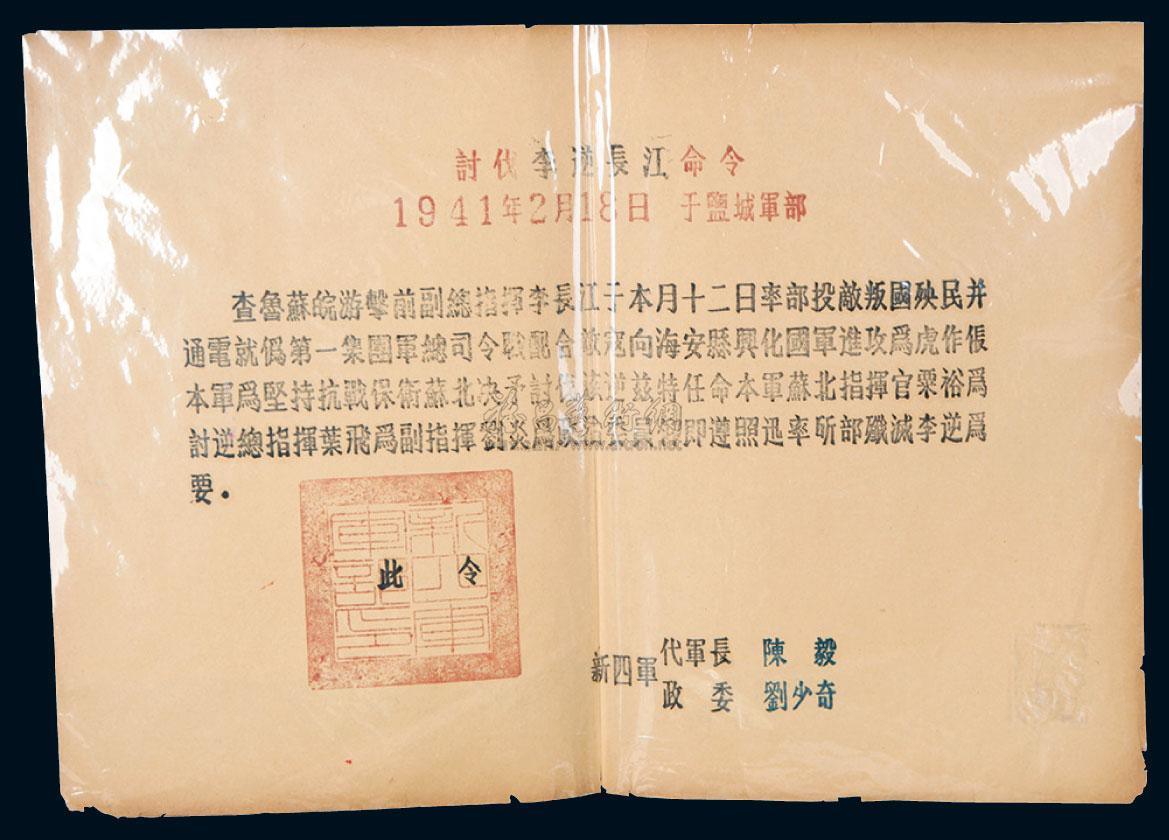 討伐李逆長江命令
1941年2月18日 于鹽城軍部
查魯蘇皖游擊前副總指揮李長江于本月十二日率部投敵叛國殃民并
通電就僞第一集團軍總司令職配合敵寇向海安縣興化國軍進攻爲虎作倀
本軍爲堅持抗戰保衛蘇北决予討伐該逆兹特任命本軍蘇北指揮官粟裕爲
討逆總指揮葉飛爲副指揮劉炎爲政治委員 即遵照迅率所部殲滅李逆爲
要.
此令
新四軍
代軍長 陳毅
政委 劉少奇